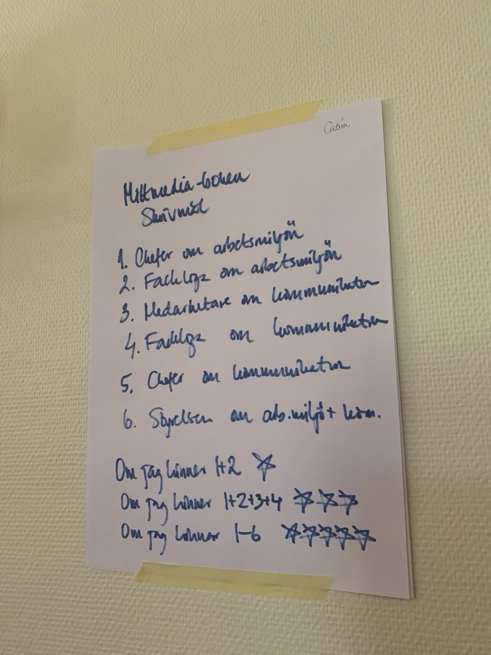 Cabin
Mittmedia-boken
Skrivmål
1. Chefer om arbetsmiljön
2. Fackliga om arbetsmiljön
3. Medarbetare om kommunikation
4. Fackliga om kommunikation
5. Chefer om kommunikation
6. Styrelsen om arb.miljö + kom.
Om jag hinner 1+2 ☆
Om jag hinner 1+2+3+4 ☆☆☆
Om jag hinner 1-6 ☆☆☆☆☆